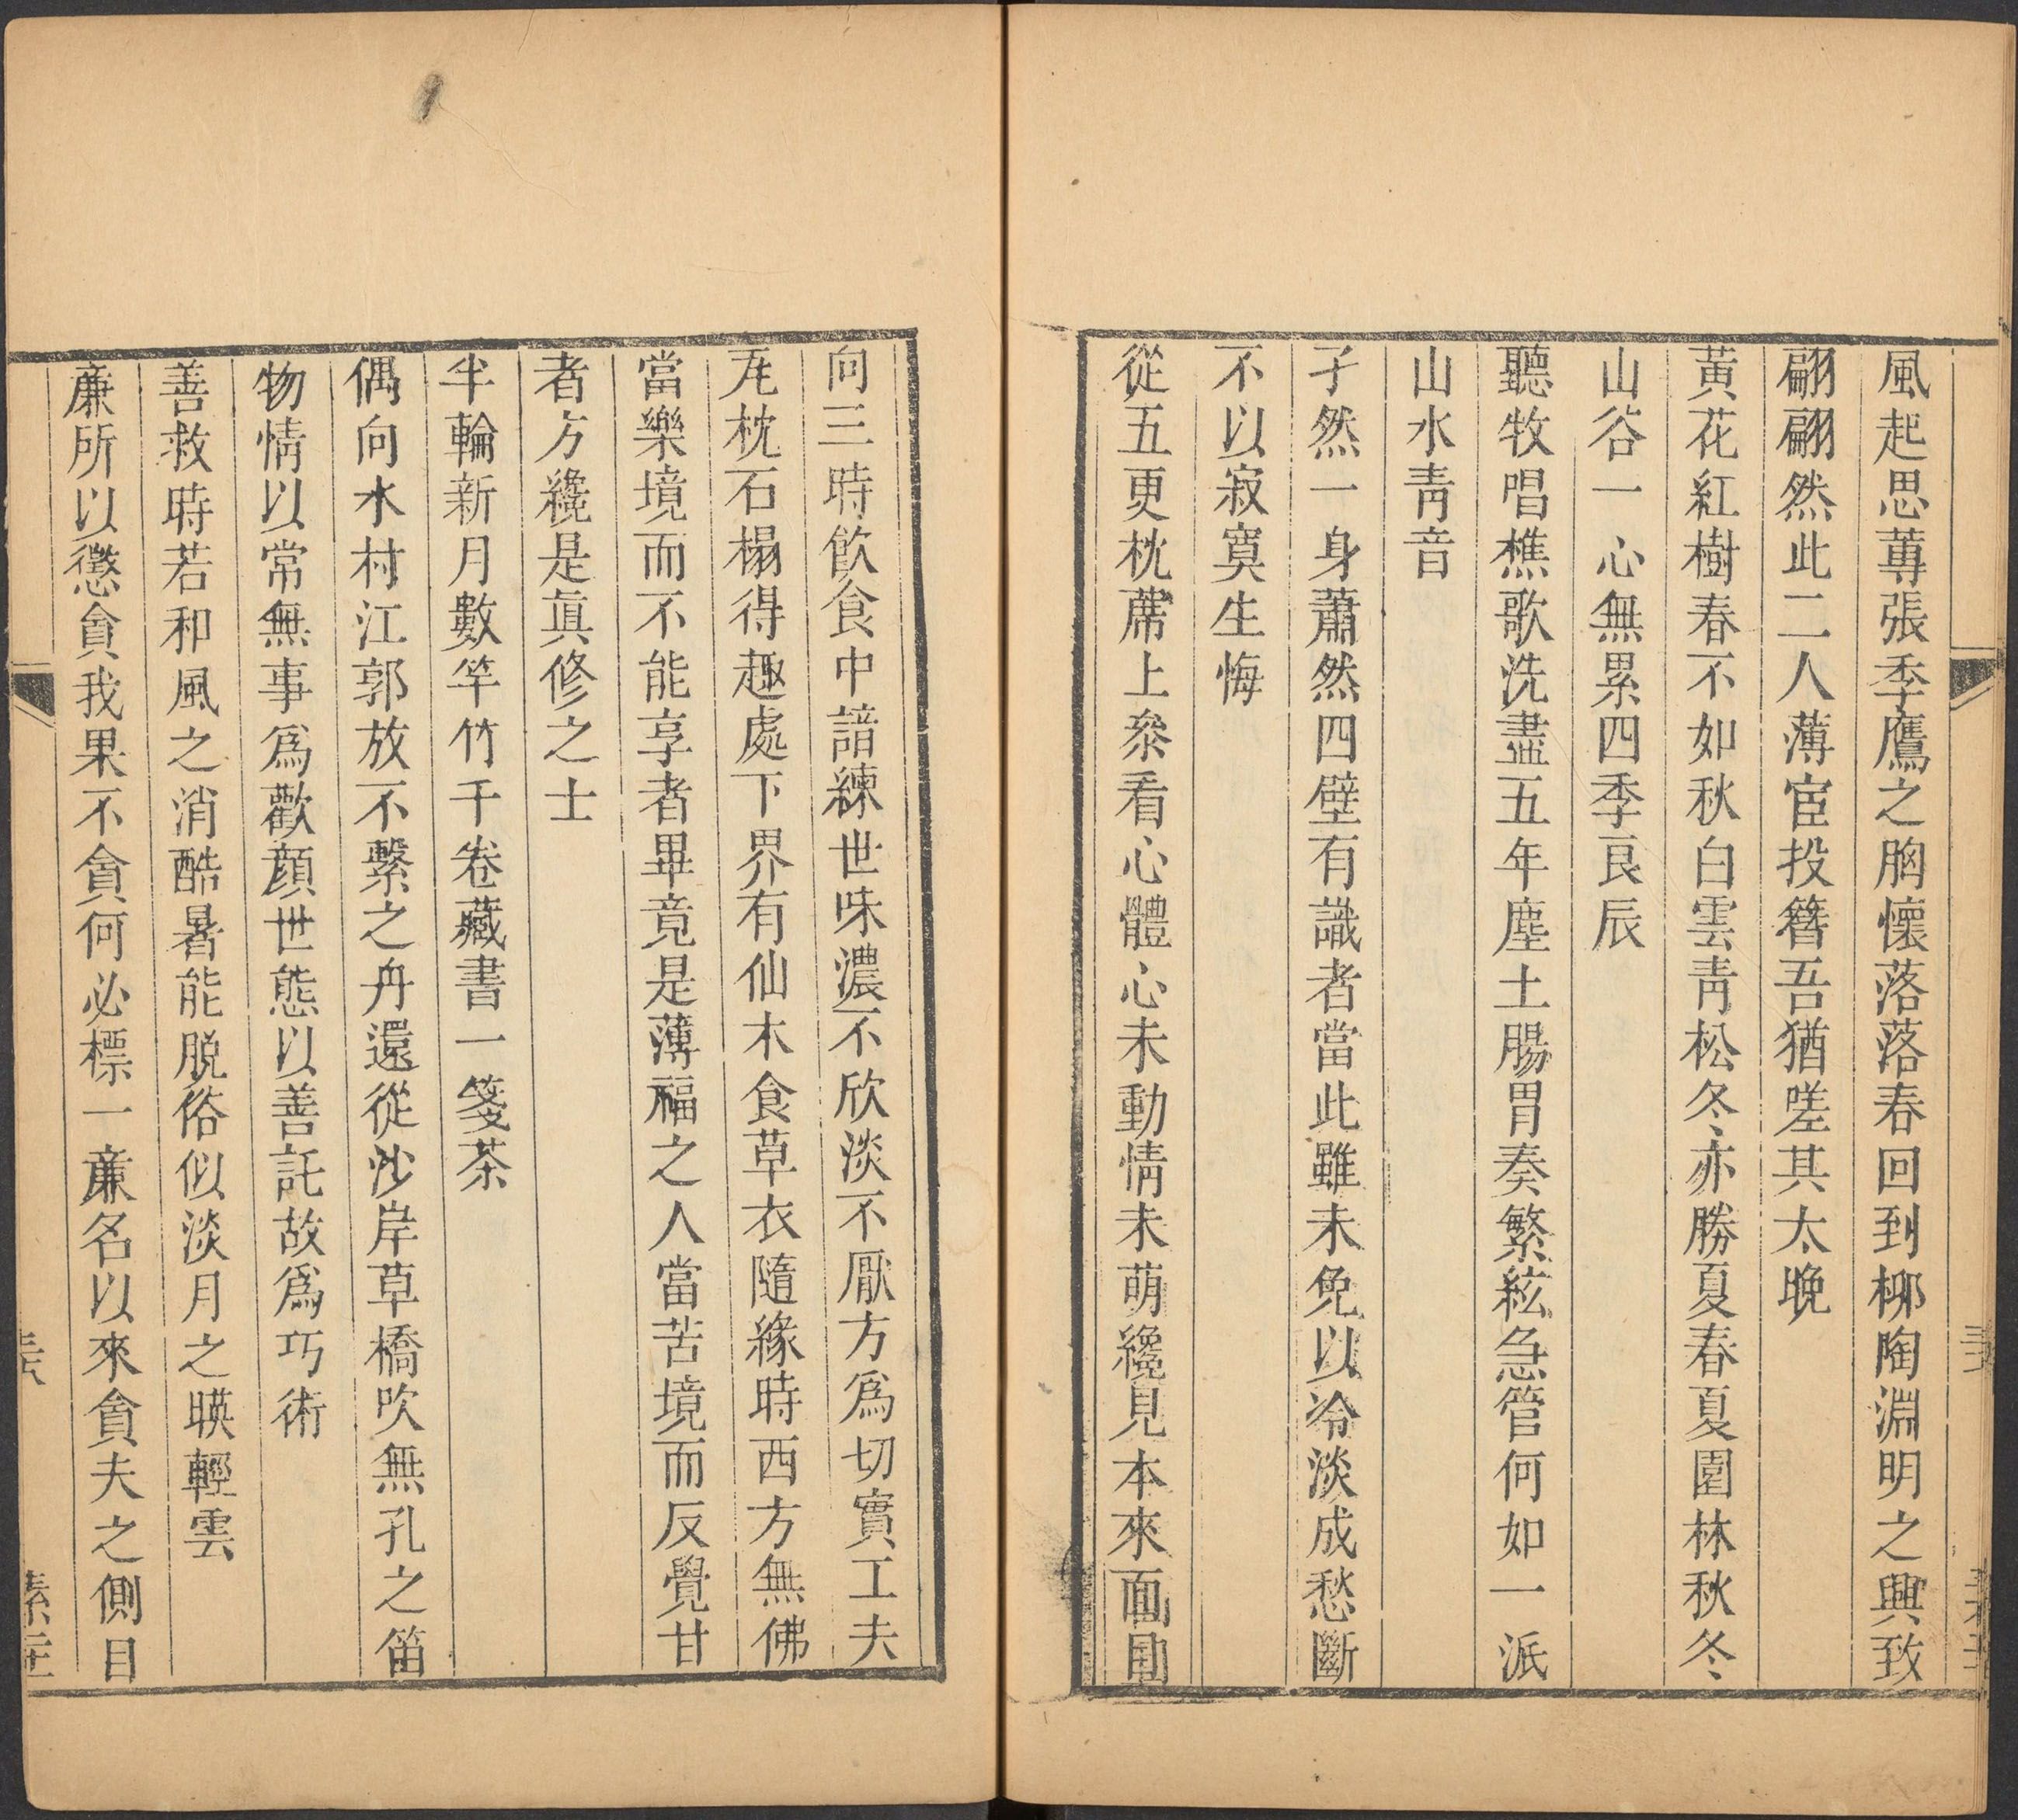 風起思蓴張季鷹之胸懷落落春回到柳陶淵明之興致
翩翩然此二人薄宦投簪吾猶嗟其太晚
黃花紅樹春不如秋白雲青松冬亦勝夏春夏園林秋冬
山谷一心無累四季良辰
聽牧唱樵歌洗盡五年塵土腸胃奏繁絃急管何如一派
山水青音
孑然一身蕭然四壁有識者當此雖未免以冷淡成愁斷
不以寂寞生悔
從五更枕蓆上叅看心體心未動情未萌纔見本來面目
向三時飲食中諳練世味濃不欣淡不厭方爲切實工夫
瓦枕石榻得趣處下界有仙木食草衣隨緣時西方無佛
當樂境而不能享者畢竟是薄福之人當苦境而反覺甘
者方纔是真修之士
半輪新月數竿竹千卷藏書一箋茶
偶向水村江郭放不繫之舟還從沙岸草橋吹無孔之笛
物情以常無事爲歡顏世態以善託故爲巧術
善救時若和風之消酷暑能脫俗似淡月之暎輕雲
廉所以懲貪我果不貪何必標一廉名以來貪夫之側目